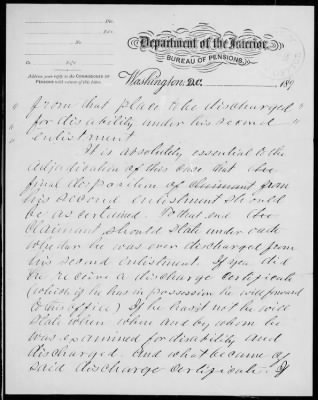 Div.
Ex'r.
No.
Department of the Interior,
BUREAU OF PENSIONS,
Address your reply to the COMMISSIONER OF
PENSIONS with return of this letter.
Washington, D.C., 189
" from that place to be discharged "
" for disability under his second "
" enlistment
It is absolutely essential to the
adjudication of this case that the
final disposition of claimant from
his second enlistment should
be ascertained. To that end the
claimant should state under oath
whether he was ever discharged from
his second enlistment. If yea did
he receive a discharge certificate
(which if he has in possession he will forward
to this office) If he has it not he will
state when when and by whom he
was examined for disability and
discharged. And what became of
said discharge certificate. If